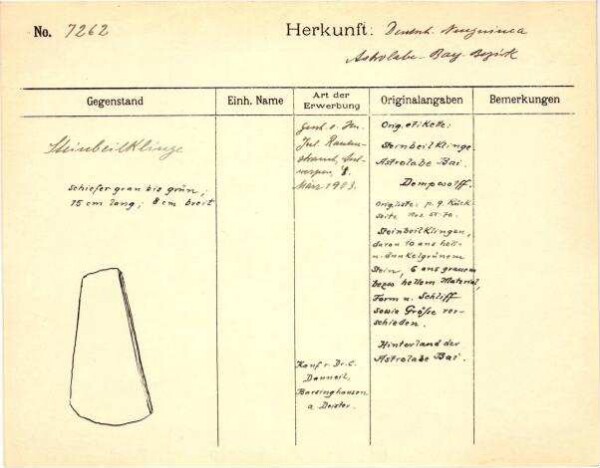 No. 7262
Herkunft: Deutsch. Neuguinea
Astrolabe-Bay-Bezirk
Gegenstand
Einh. Name
Art der Erwerbung
Originalangaben
Bemerkungen
Steinbeilklinge
schiefer grau bis grün;
15 cm lang; 8 cm breit
Gesch. v. Hn.
Jul. Rauten-
strauch, Ant-
werpen, 8.
März 1903.
Kauf v. Dr. C.
Danneil,
Barsinghausen
a. Deister.
Orig. etikete:
Steinbeilklinge
Astrolabe Bai.
Dempwolff.
Orig. liste: p. 9. Rück-
seite Nrs 55-70.
Steinbeilklingen,
davon 10 aus hell-
u. dunkelgrünem
Stein, 6 aus grauem
bezw hellem Material,
Form u. Schliff
sowie Größe ver-
schieden.
Hinterland der
Astrolabe Bai.